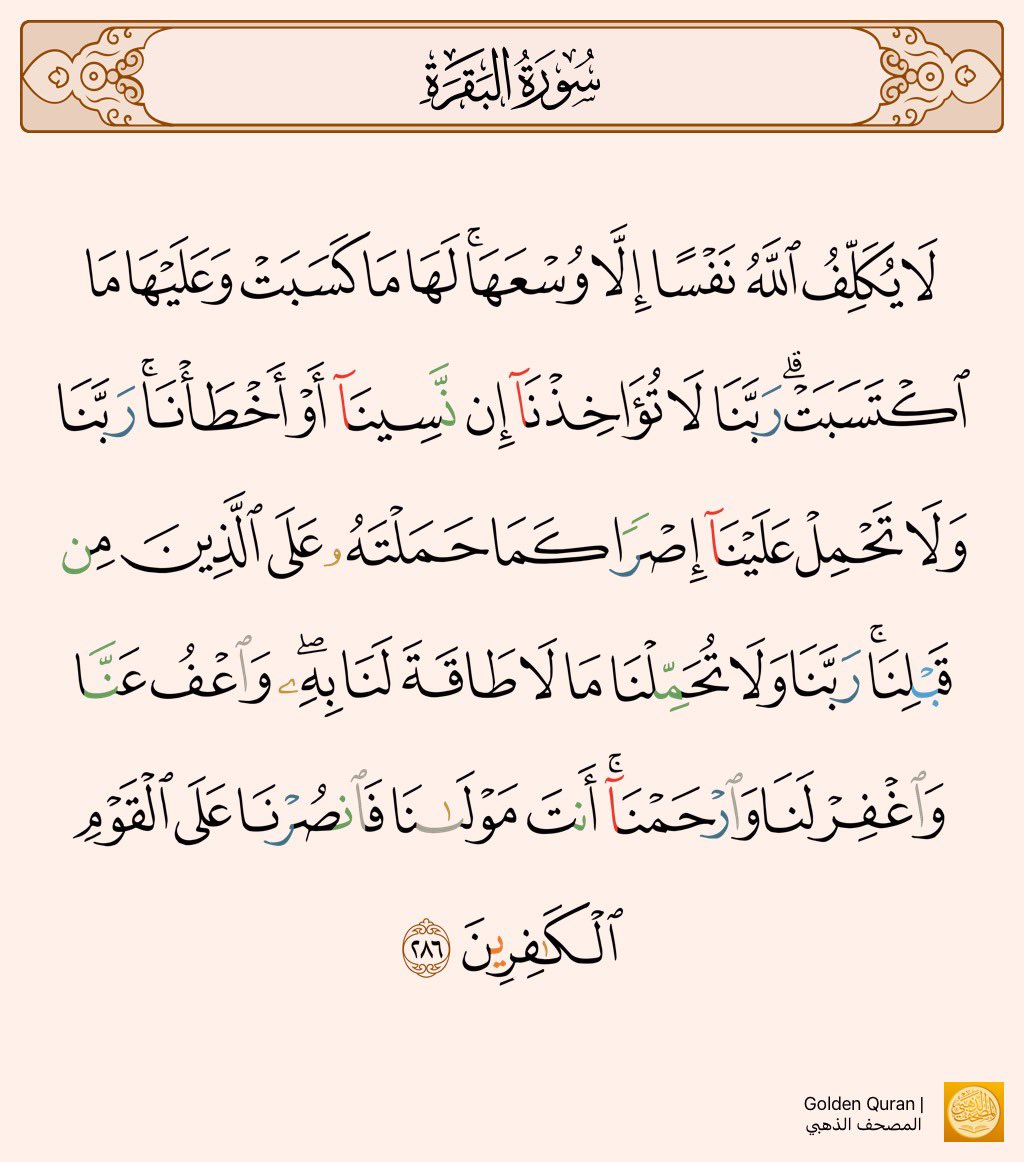 سُورَةُ الْبَقَرَةِ
لَا يُكَلِّفُ ٱللَّهُ نَفۡسًا إِلَّا وُسۡعَهَاۚ لَهَا مَا كَسَبَتۡ وَعَلَيۡهَا مَا
ٱكۡتَسَبَتۡۗ رَبَّنَا لَا تُؤَاخِذۡنَآ إِن نَّسِينَآ أَوۡ أَخۡطَأۡنَاۚ رَبَّنَا
وَلَا تَحۡمِلۡ عَلَيۡنَآ إِصۡرٗا كَمَا حَمَلۡتَهُۥ عَلَى ٱلَّذِينَ مِن
قَبۡلِنَاۚ رَبَّنَا وَلَا تُحَمِّلۡنَا مَا لَا طَاقَةَ لَنَا بِهِۦۖ وَٱعۡفُ عَنَّا
وَٱغۡفِرۡ لَنَا وَٱرۡحَمۡنَآۚ أَنتَ مَوۡلَىٰنَا فَٱنصُرۡنَا عَلَى ٱلۡقَوۡمِ
ٱلۡكَٰفِرِينَ ٢٨٦
Golden Quran |
المصحف الذهبي